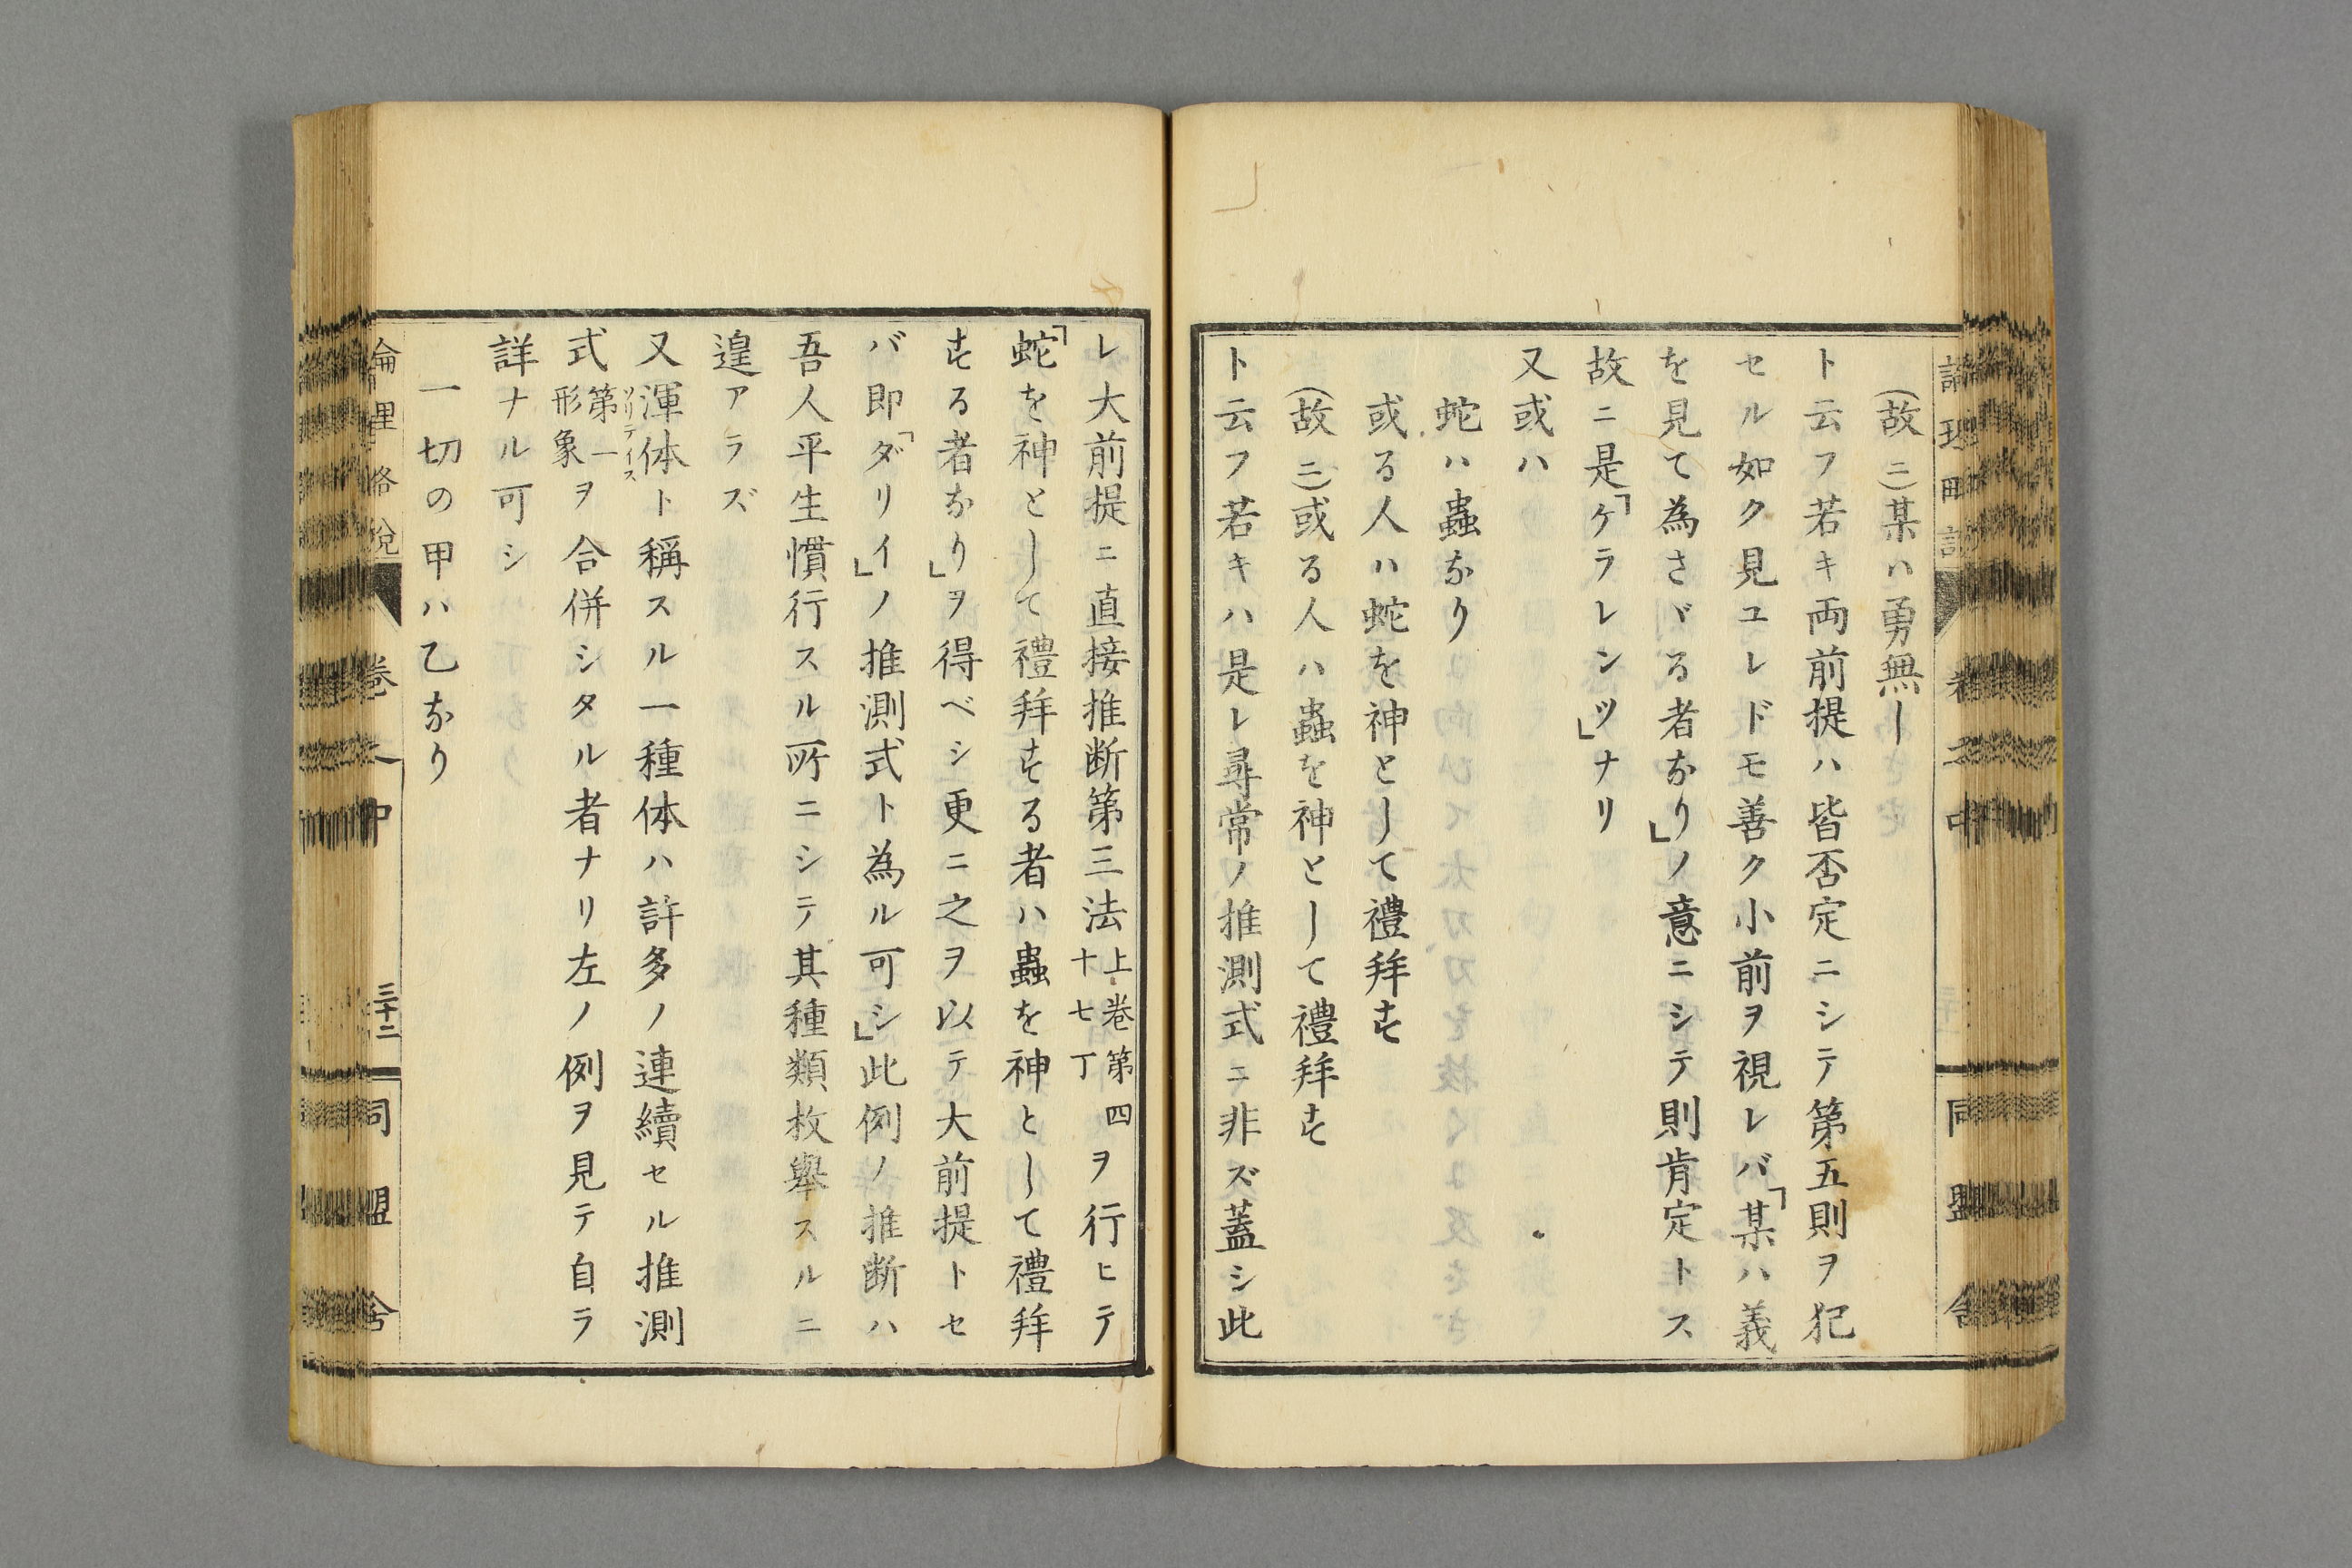 (故ニ)某ハ勇無し
ト云フ若キ両前提ハ皆否定ニシテ第五則ヲ犯
セル如ク見ユレドモ善ク小前ヲ視レバ「某ハ義
を見て為さゞる者なり」ノ意ニシテ則肯定トス
故ニ是「ケラレンツ」ナリ
又或ハ
蛇ハ蟲なり
或る人ハ蛇を神として禮拜す
(故ニ)或る人ハ蟲を神として禮拜す
ト云フ若キハ是レ尋常ノ推測式ニ非ズ蓋シ此
レ大前提ニ直接推断第三法上卷第四十七丁ヲ行ヒテ
「蛇を神として禮拜する者ハ蟲を神として禮拜
する者なり」ヲ得ベシ更ニ之ヲ以テ大前提トセ
バ即「ダリイ」ノ推測式ト為ル可シ」此例ノ推断ハ
吾人平生慣行スル所ニシテ其種類枚舉スルニ
遑アラズ
又渾体ソリテイストト稱スル一種体ハ許多ノ連續セル推測
式第一形象ヲ合併シタル者ナリ左ノ例ヲ見テ自ラ
詳ナル可シ
一切の甲ハ乙なり
卷之中
三十二
同盟舎